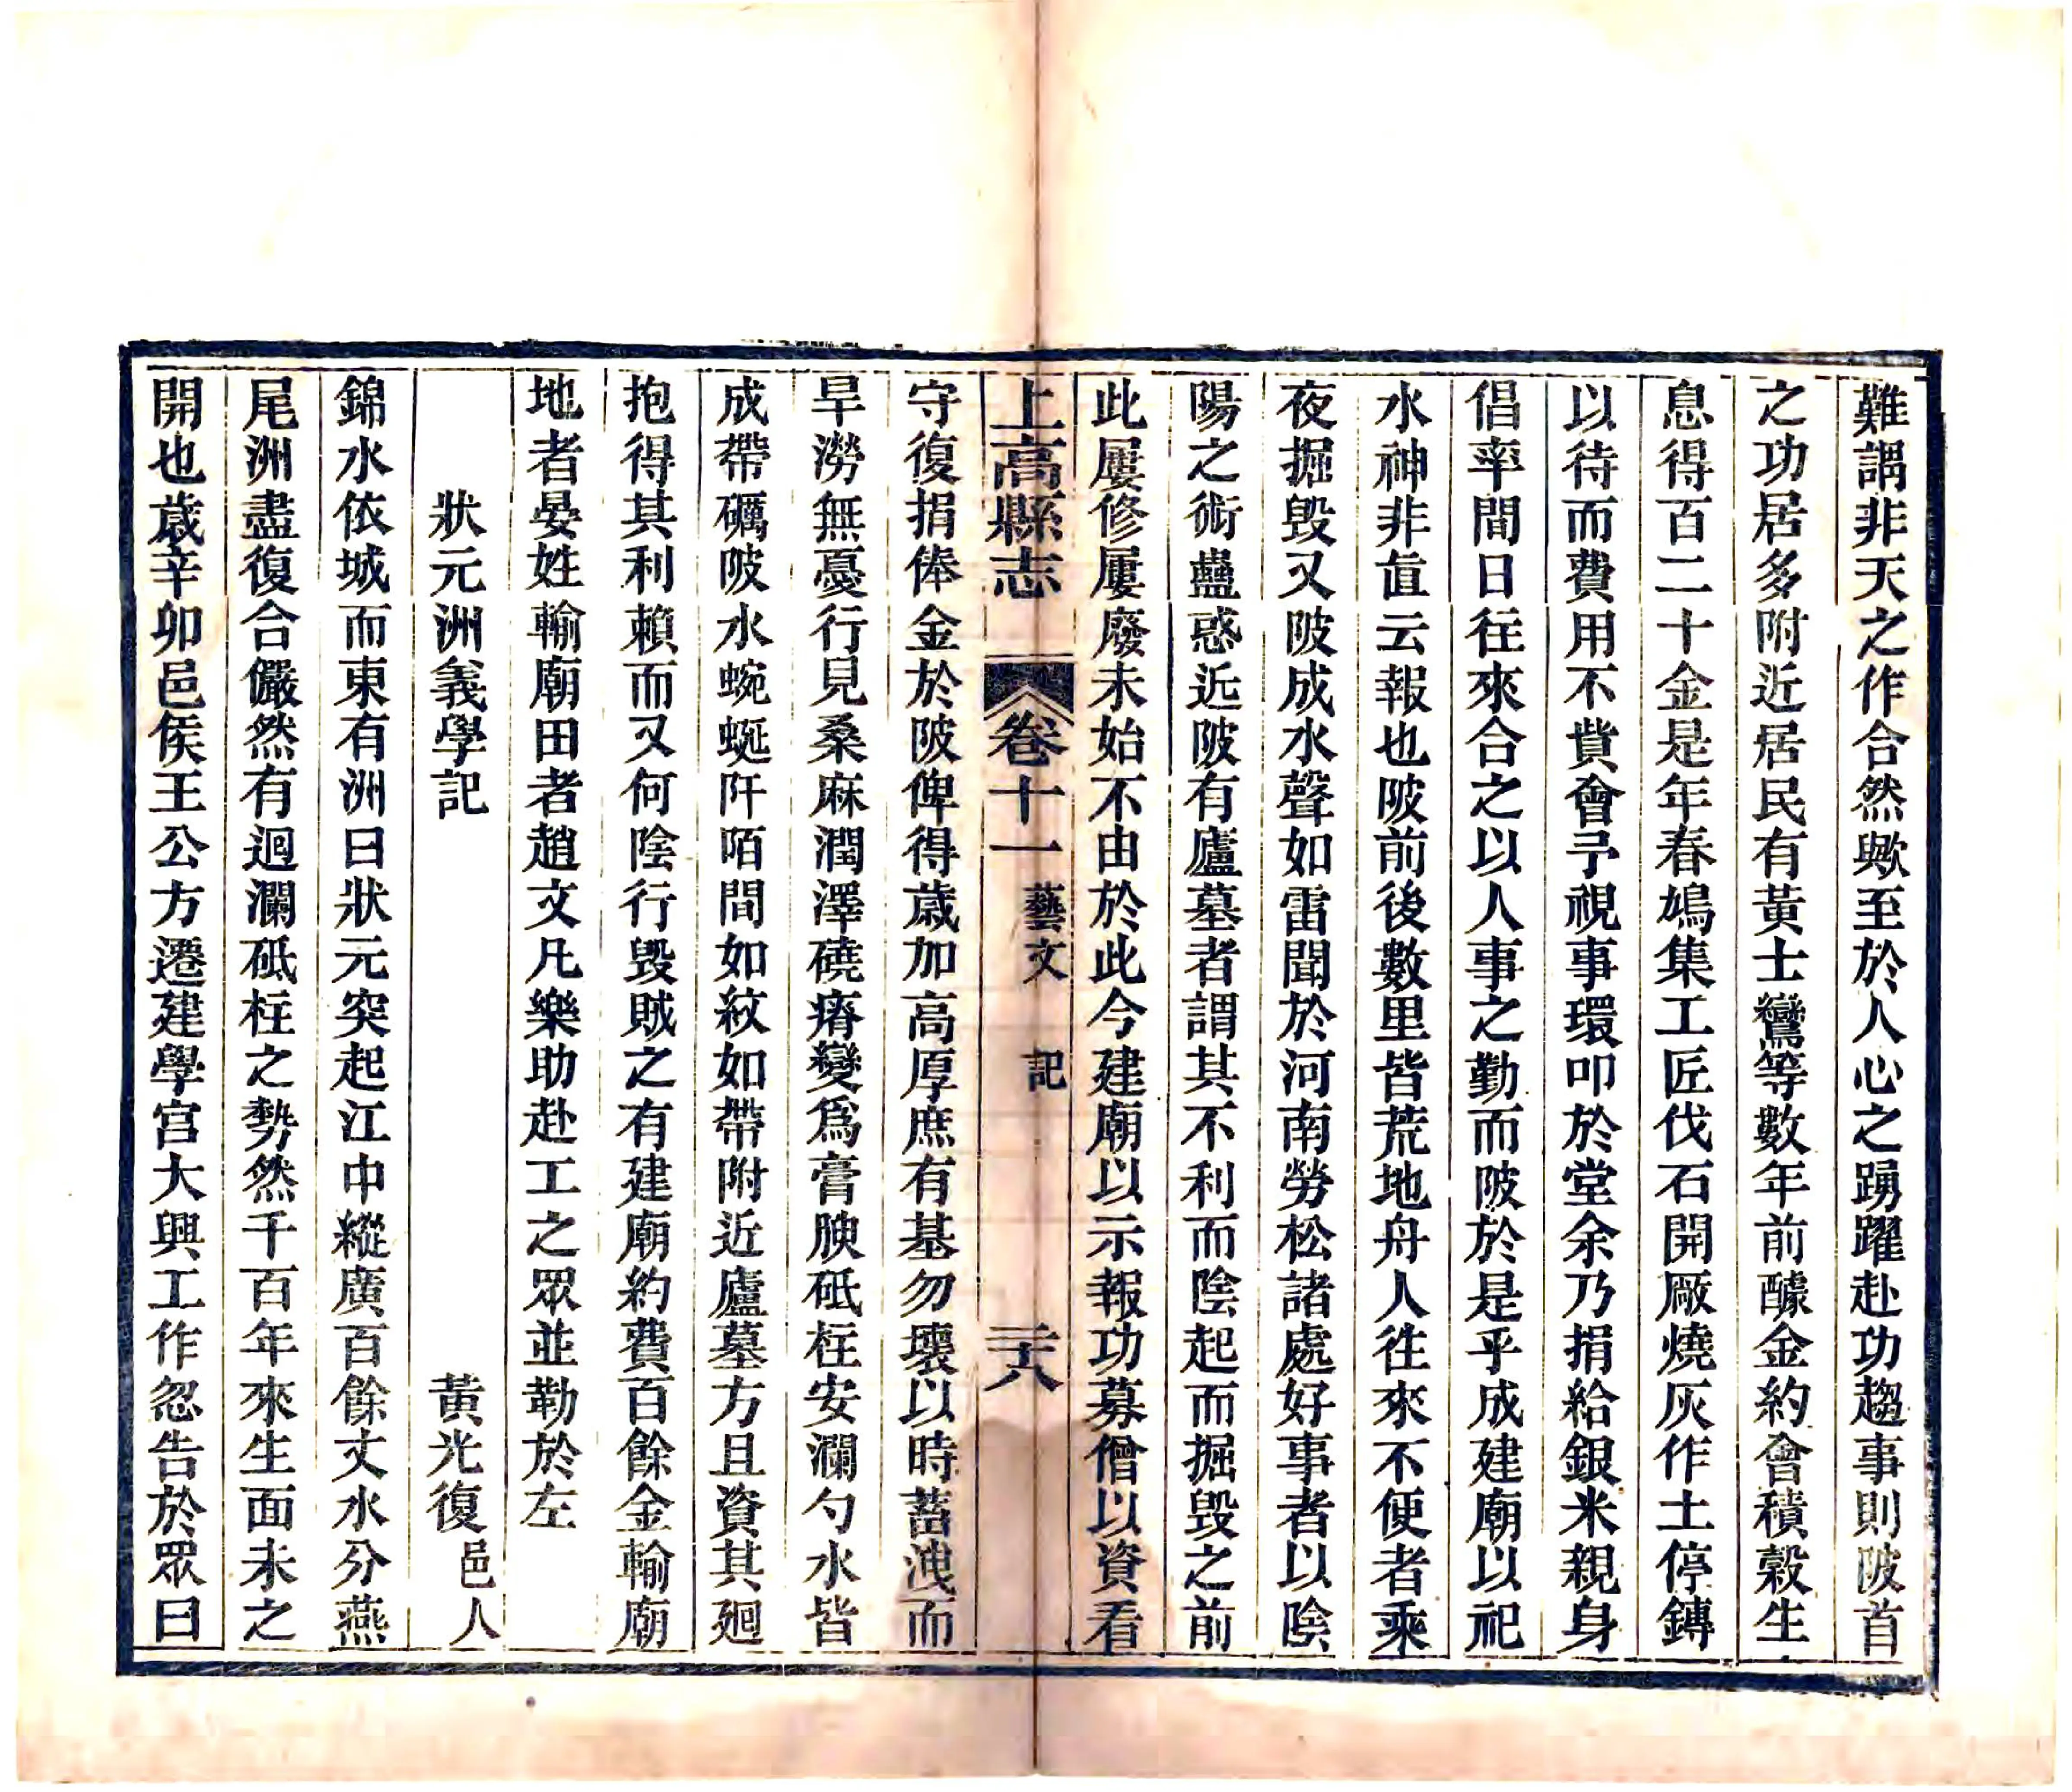 難謂非天之作合然歟至於人心之踴躍赴功趨事則陂首
之功居多附近居民有黃士鸞等數年前醵金約會積穀生
息得百二十金是年春鳩集工匠伐石開厰燒灰作土停鏄
以待而費用不貲會予視事環叩於堂余乃捐給銀米親身
倡率間日往來合之以人事之勤而陂於是乎成建廟以祀
水神非直云報也陂前後數里皆荒地舟人往來不便者乘
夜掘毀又陂成水聲如雷聞於河南勞松諸處好事者以陰
陽之術蠱惑近陂有廬墓者謂其不利而陰起而掘毀之前
此屢修屢廢未始不由於此今建廟以示報功募僧以資看
上高縣志 卷十一 藝文 記 三十八
守復捐俸金於陂俾得歲加高厚庶有基勿壞以時蓄洩而
旱澇無憂行見桑麻潤澤磽瘠變爲膏腴砥柱安瀾勺水皆
成帶礪陂水蜿蜒阡陌間如紋如帶附近廬墓方且資其廻
抱得其利賴而又何陰行毀賊之有建廟約費百餘金輸廟
地者晏姓輸廟田者趙文凡樂助赴工之眾並勒於左
狀元洲義學記 黃光復邑人
錦水依城而東有洲曰狀元突起江中縱廣百餘丈水分燕
尾洲盡復合儼然有迴瀾砥柱之勢然千百年來生面未之
開也歲辛卯邑侯王公方遷建學宮大興工作忽告於眾曰